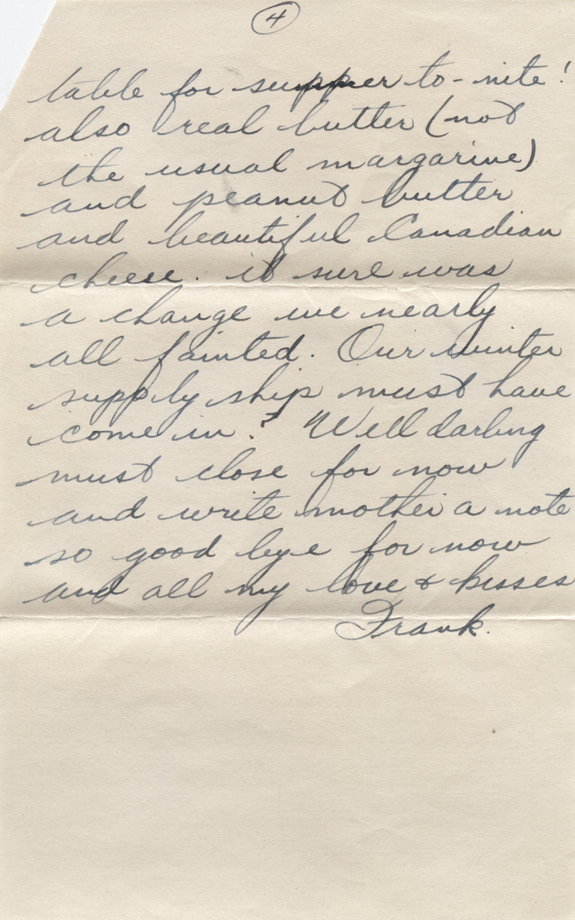 4
table for supper to-nite!
also real butter (not
the usual margarine)
and peanut butter
and beautiful Canadian
cheese. it sure was
a change we nearly
all fainted. Our winter
supply ship must have
come in.? Well darling
must close for now
and write mother a note
so good bye for now
and all my love & kisses
Frank.